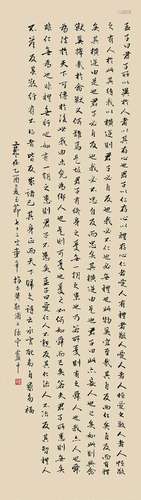 孟子曰君子所以異於人者以其存心也君子以仁存心以禮存心仁者愛人有禮者敬人愛人者人恆愛之敬人者人恆敬
之有人於此其待我以橫逆則君子必自反也我必不仁也必無禮也此物奚宜至哉其自反而仁矣自反而有禮
矣其橫逆由是也君子必自反也我必不忠自反而忠矣其橫逆由是也君子曰此亦妄人也已矣如此則與禽
獸奚擇哉於禽獸又何難焉是故君子有終身之憂無一朝之患也乃若所憂則有之舜人也我亦人也舜
為法於天下可傳於後世我由未免為鄉人也是則可憂也憂之如何如舜而已矣若夫君子所患則亡矣
非仁無為也非禮無行也如有一朝之患則君子不患矣孟子曰愛人不親反其仁治人不治反其智禮人
不答反其敬行有不得者皆反求諸己其身正而天下歸之詩云永言配命自求多福
歲在乙酉